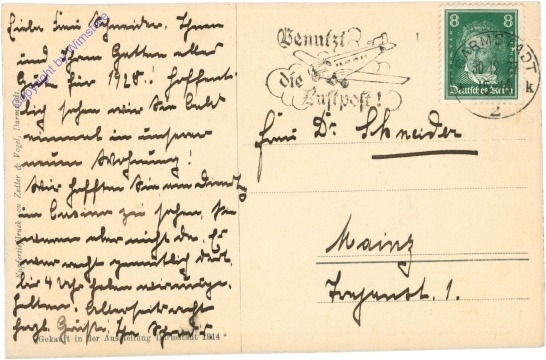 Liebe Frau Schneider. Ihnen
und Ihrem Gatten alles
Gute für 1928! Hoffent-
lich sehen wir Sie bald
einmal in unserer
neuen Wohnung!
Wir hofften Sie am
im Casino zu sehen, Sie
waren aber nicht da. Es
war recht gemütlich
bis 4 Uhr haben
Grüße, Ihre
Kupfertiefdruck von Zedler & Vogel, Darmstadt
"Gekauft in der Ausstellung Darmstadt 1914"
Copyright by Wimstore
Benutzt
die
Luftpost!
8 8
Deutsches Reich
DARMSTADT
2 k
Frau Dr. Schneider
Mainz
1.